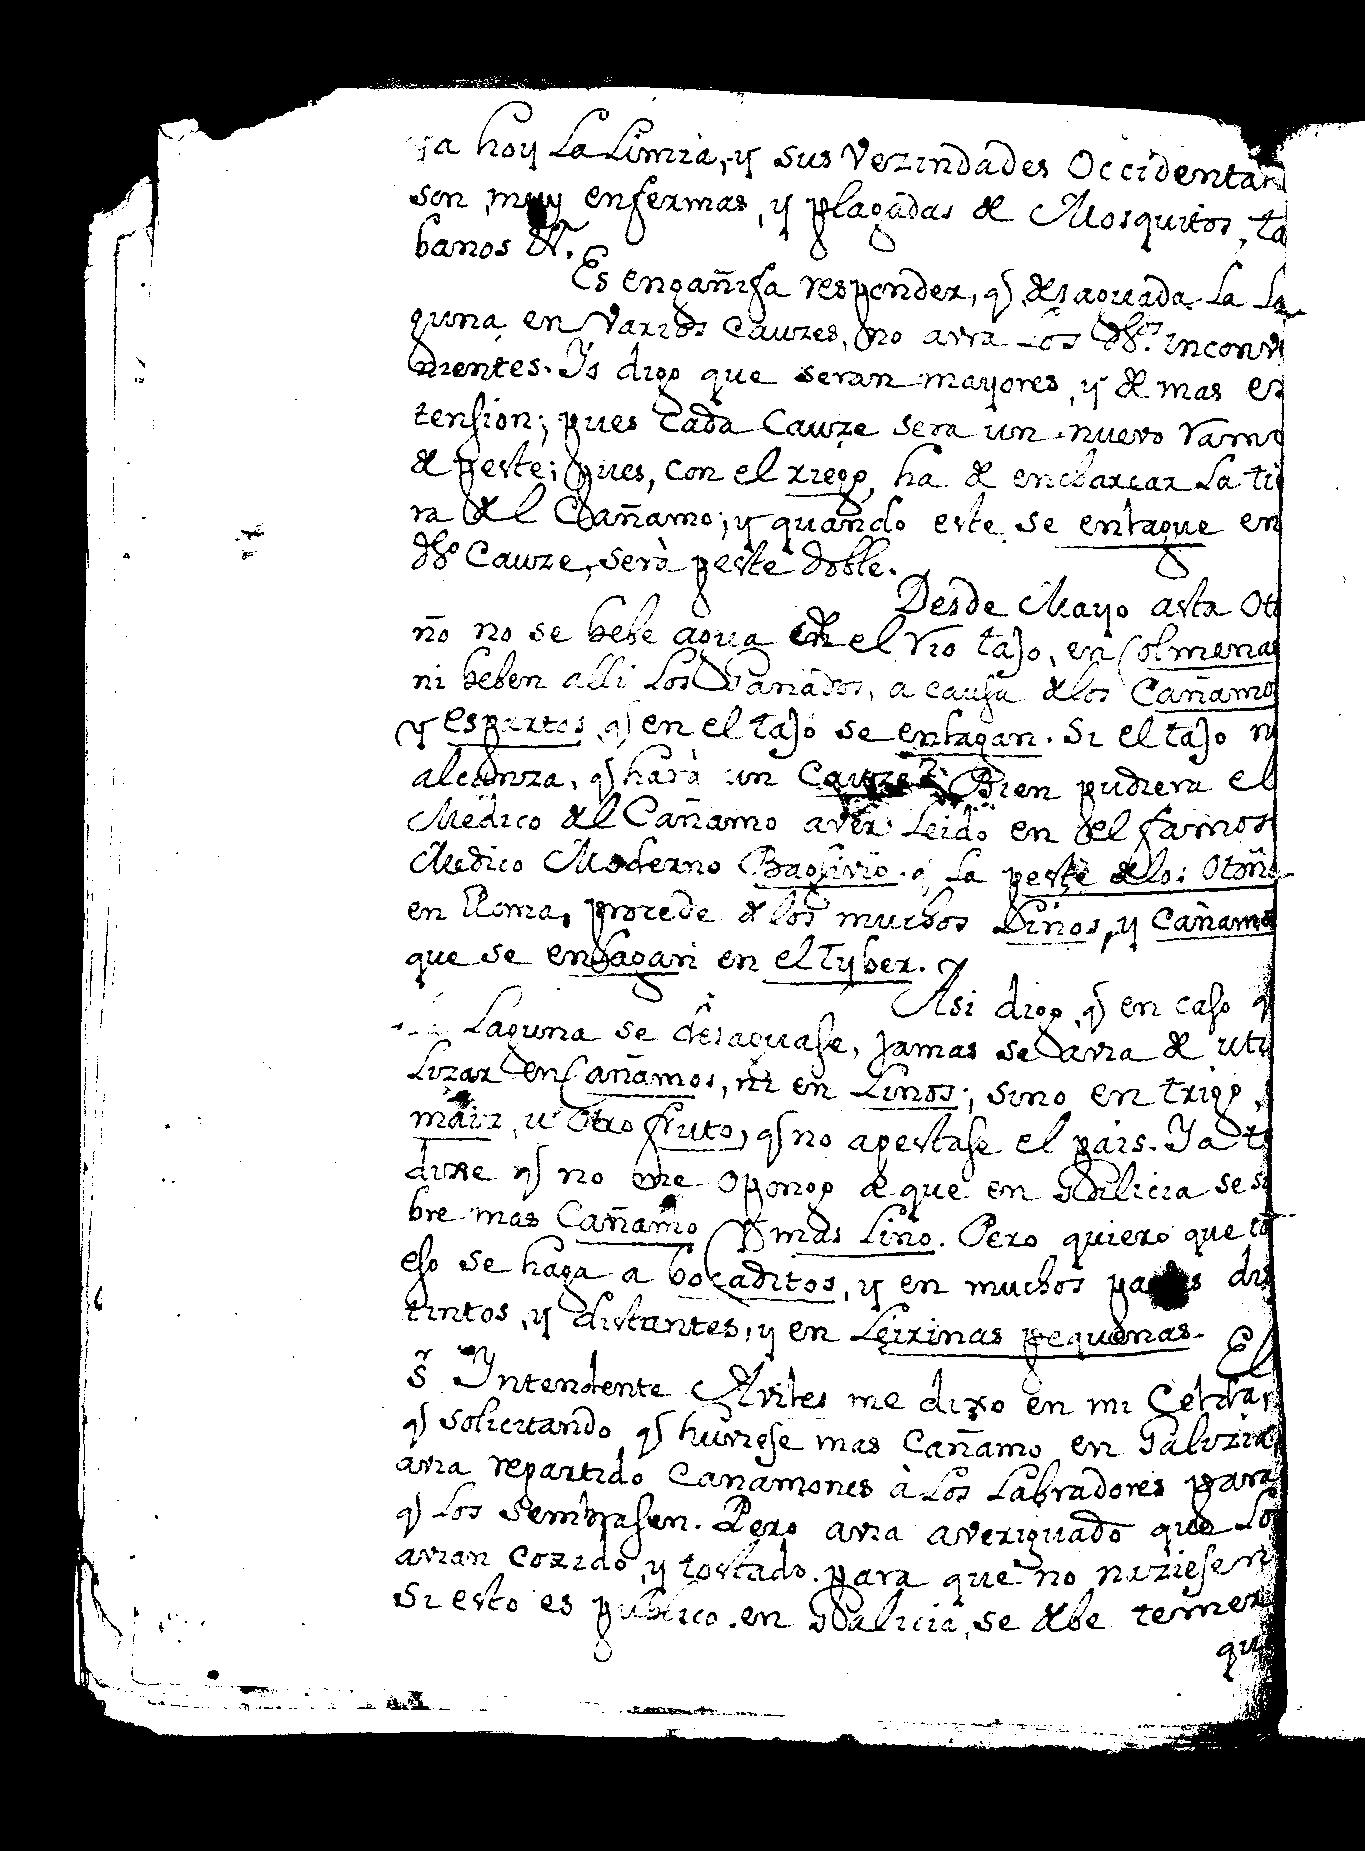 ya hoy La Limia, y sus Vezindades Occidentan
son muy enfermas, y plagadas de Mosquitos, ta
banos &c.
Es engañifa responder, q̃ desaguada La La
guna en varios Cauzes, no avra Los dhos. inconve
nientes. Yo digo que seran mayores, y de mas es
tension; pues cada Cauze sera un nuevo ramo
de peste; pues, con el riego, ha de encharcar La tie
ra del Cañamo; y quando este se enlague en
dho Cauze, serà peste doble.
Desde Mayo asta Oto
ño no se bebe agua en el rio tajo, en Colmenar
ni beben alli Los Ganados, a causa de los Cañamos
y espartos q̃ en el tajo se enlagan. Si el tajo no
alcanza, q̃ harà un Cauze? Bien pudiera el
Medico del Cañamo aver Leido en el famoso
Medico Moderno Baglivio. q̃ La peste de los Otoños
en Roma, procede de los muchos Linos, y Cañamos
que se enlagan en el Tyber.
Asi digo, q̃ en caso q̃
Laguna se desaguase, jamas se avia de uti
Lizar en Cañamos, ni en Linos; sino en trigo,
maiz, u otro fruto, q̃ no apestase el pais. Ya te
dixe q̃ no me opongo a que en Galicia se si
bre mas Cañamo y mas Lino. Pero quiero que to
eso se haga a bocaditos, y en muchos paises dis
tintos, y distantes, y en Leirinas pequenas.
El
Sr Yntendente Aviles me dixo en mi Celda,
q̃ solicitando q̃ huviese mas Cañamo en Galizia
avia repartido Canamones à Los Labradores para
q̃ Los sembrasen. Pero avia averiguado que Los
avian cozido, y tostado. para que no naziesen
Si esto es publico en Galicia, se debe temer
que